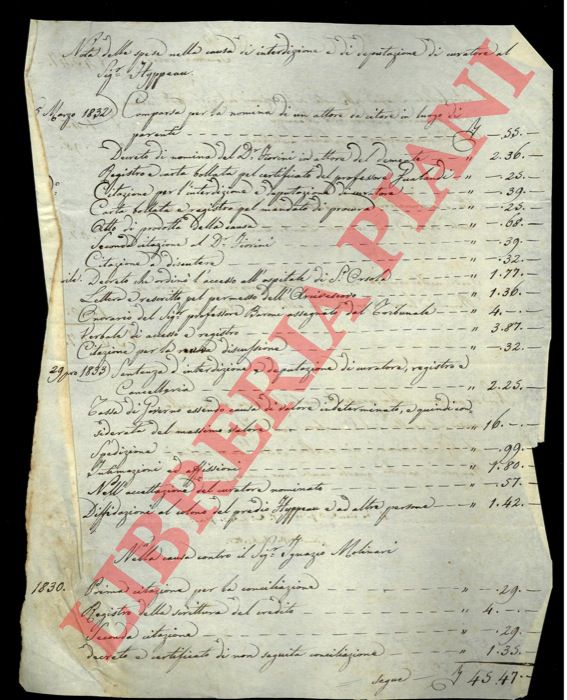 Nota delle spese nella causa di interdizione e di deputazione di curatore al
Sigr. Hyppeau.
5 Marzo 1832 Comparsa per la nomina di un attore da citare in luogo di
parente . 55. —
Decreto di nomina del Dr. Fiorini in attore del " 2. 36. —
Registro e carta bollata pel certificato del professore " . 25. —
Citazione per l'interdizione e deputazione di curatore " . 39. —
Carta bollata e registro pel mandato di procura " . 25. —
Atto di della causa " . 68. —
Seconda citazione al Dr. Fiorini " . 39. —
Citazione a discutere " . 32. —
Decreto che ordinò l'accesso all'ospitale di St. Orsola " 1. 77. —
Lettera e rescritto pel permesso dell' " 1. 36. —
Onorario del Sigr. professore assegnato dal Tribunale " 4. — . —
Verbali di accesso e registro " 3. 87. —
Citazione per la discussione " . 32. —
1833 Sentenza d'interdizione e deputazione di curatore, registro e
Cancelleria " 2. 25. —
Tassa di Governo essendo causa di valore indeterminato, e quindi con
siderata del massimo valore " 16. — . —
Spedizione " . 99. —
Intimazioni ed affissioni " 1. 80. —
Nell' accettazione del curatore nominato " . 57. —
Diffidazioni al colono del predio Hyppeau e ad altre persone " 1. 42. —
Nella causa contro il Sigr. Ignazio Molinari
1830. Prima citazione per la conciliazione " . 29. —
Registro della scrittura del credito " 4. — . —
Seconda citazione " . 29. —
decreto e certificato di non seguita conciliazione " 1. 35. —
segue 45. 47. —
LIBRERIA PIANI